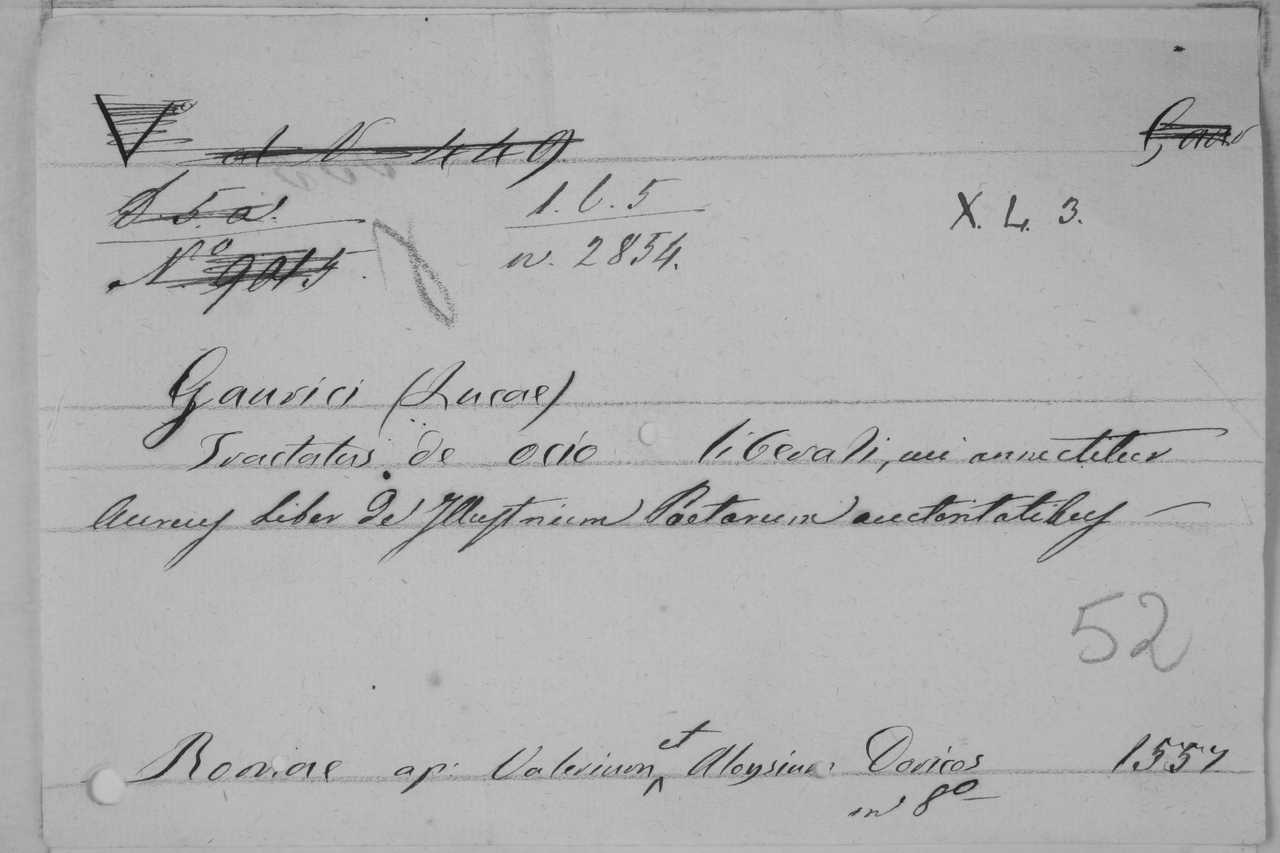 V ad N 449
D. 5. a.
1. b. 5
X. L. 3.
N.o 9015
n. 2854.
Gaurici (Lucae)
Tractatus de ocio liberali, cui annectitur
Aureus Liber de Illustrium Poetarum auctoritatibus —
52
Romae ap: Valerium et Aloysium Doricos 1557
in 8o